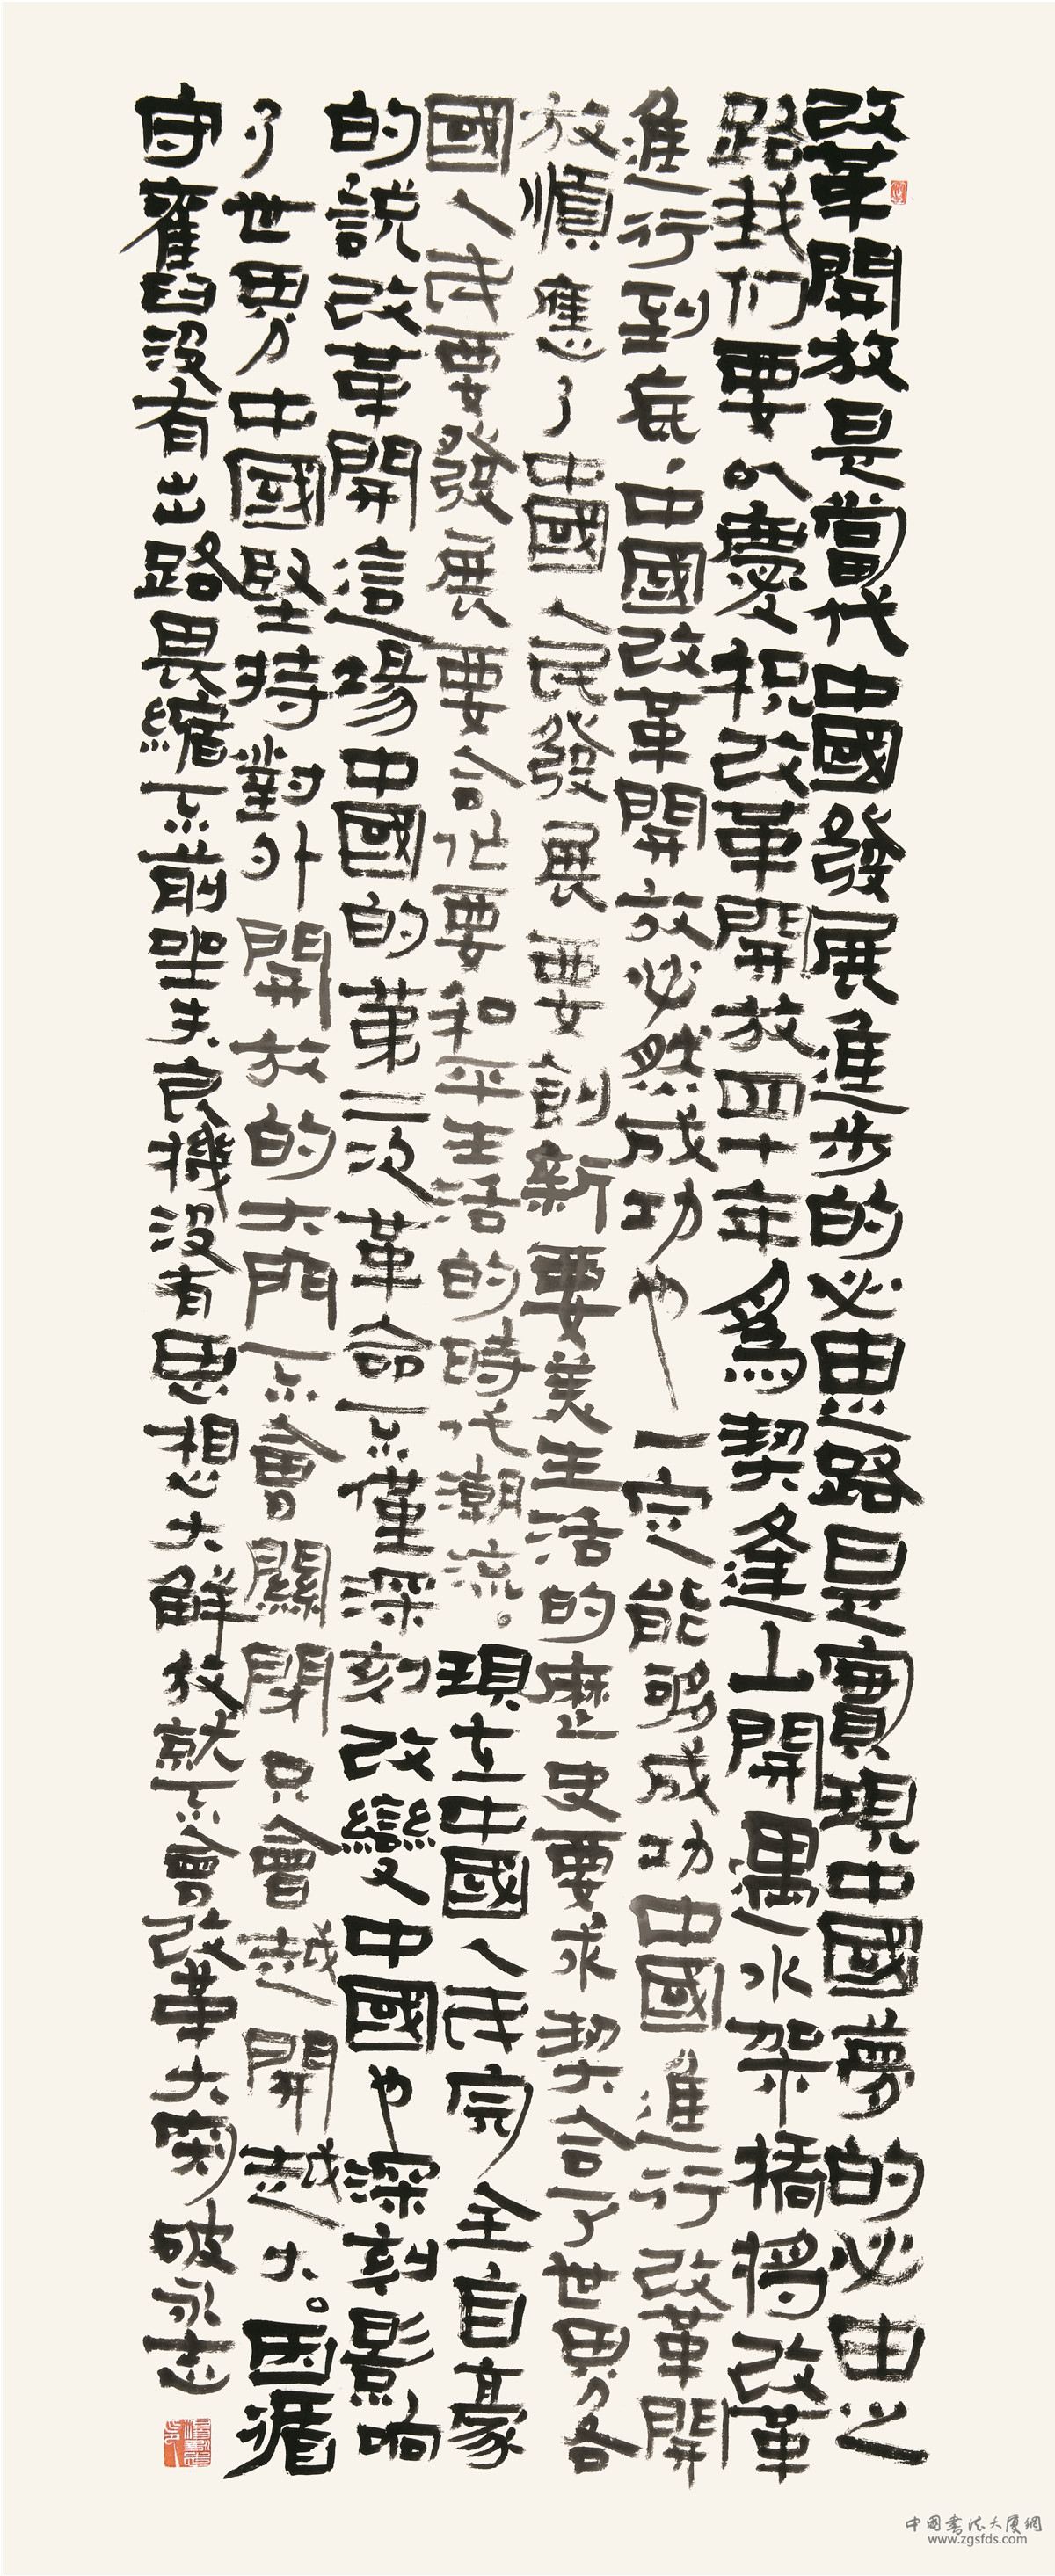 改革開放是當代中國發展進步的必由之路是實現中國夢的必由之
路我们要以慶祝改革開放四十年為契逢山開遇水架橋將改革
進行到底、中國改革開放必然成功也一定能够成功中國進行改革開
放順應了中國人民發展要創新要美生活的歷史要求契合了世界各
國人民要發展要合作要和平生活的時代潮流。現在中國人民完全自豪
的説改革開這場中國的第二次革命不僅深刻改變中國也深刻影响
了世界中國堅持對外開放的大門不會關閉只會越開越大。因循
守舊没有出路畏縮不前坐失良機没有思想大解放就不會改革大突破永志
中國書法大廈網
www.zgsfds.com